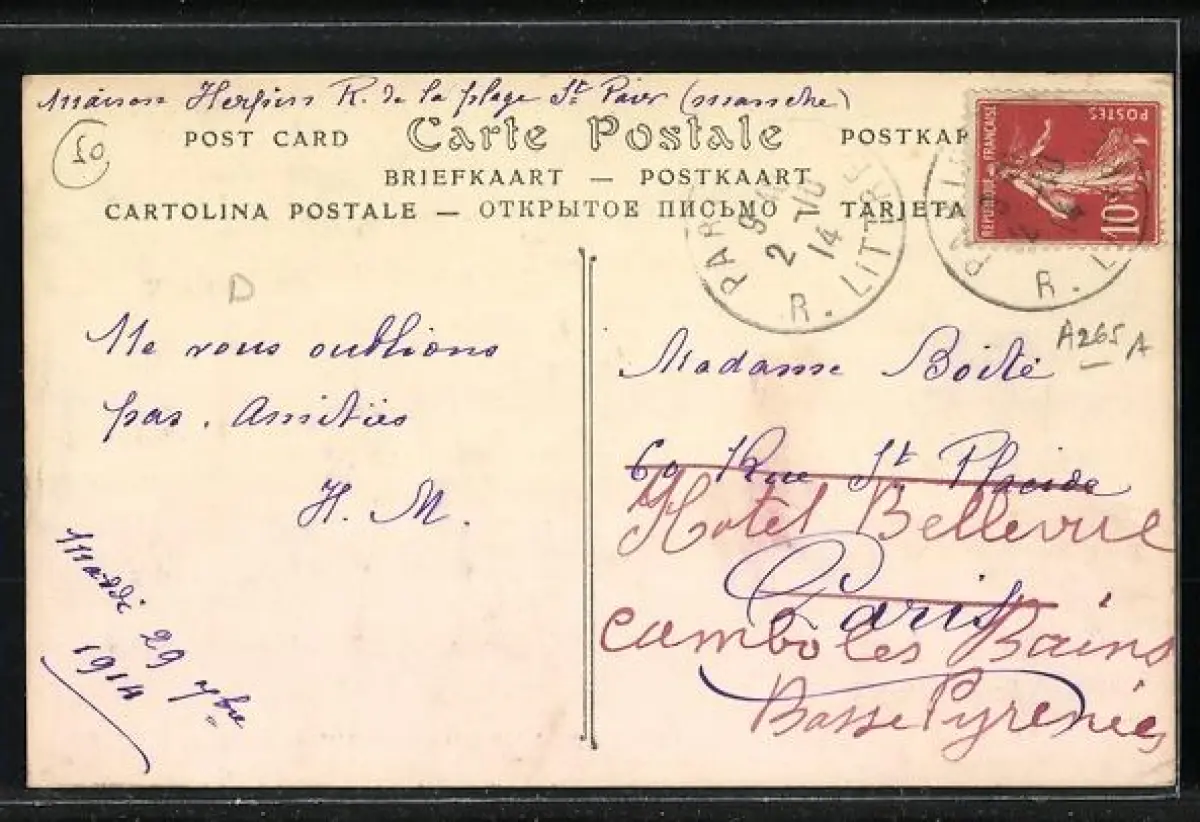 Maison Herpin R. de la plage St Pair (manche)
50
POST CARD Carte Postale POSTKAR
BRIEFKAART — POSTKAART
CARTOLINA POSTALE — ОТКРЫТОЕ ПИСЬМО TARJETA
REPUBLIQUE FRANÇAISE
POSTES
10c
PARIS
9 10
2 -10
14
R. LITTRE
PARIS
2 -10
14
R. L
D
A265 A
Ne vous oublions
pas. Amitiés
H. M.
Mardi 29 7bre
1914
Madame Boité
69 Rue St Placide
Hotel Bellevue
Paris
Cambo les Bains
Basse Pyrenées